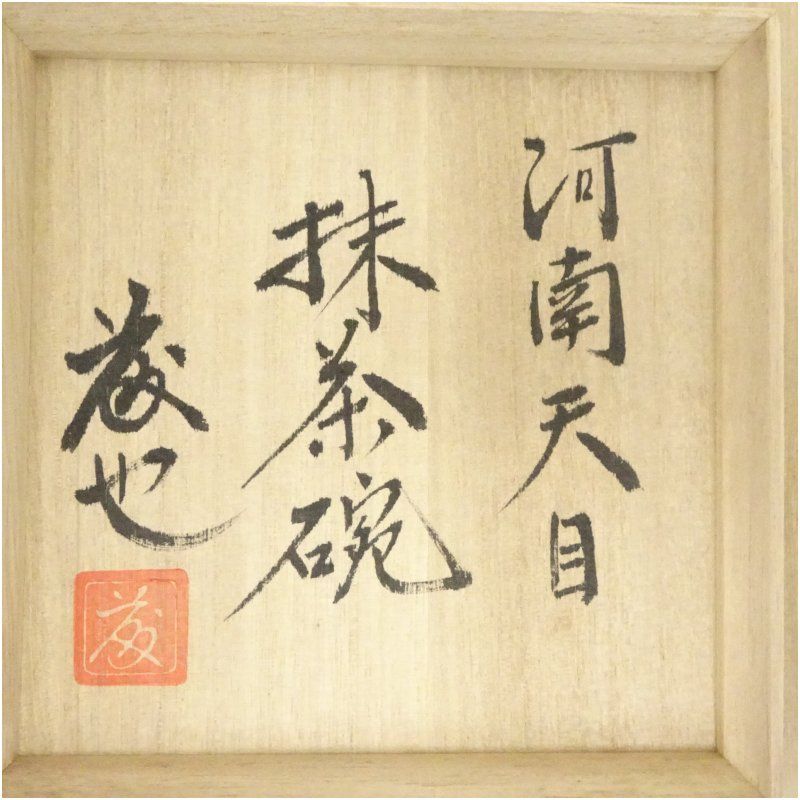 河南天目
抹茶碗
也